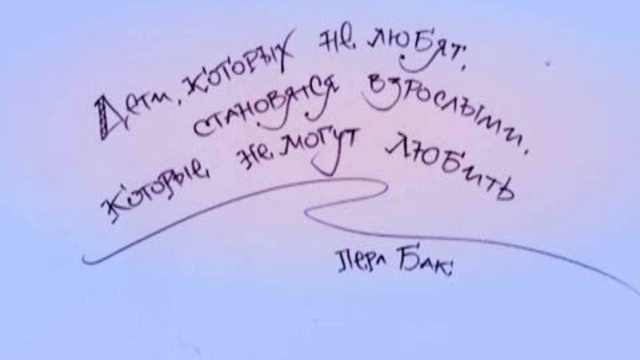 Дети, которых не любят,
становятся взрослыми,
которые не могут любить
Перл Бак